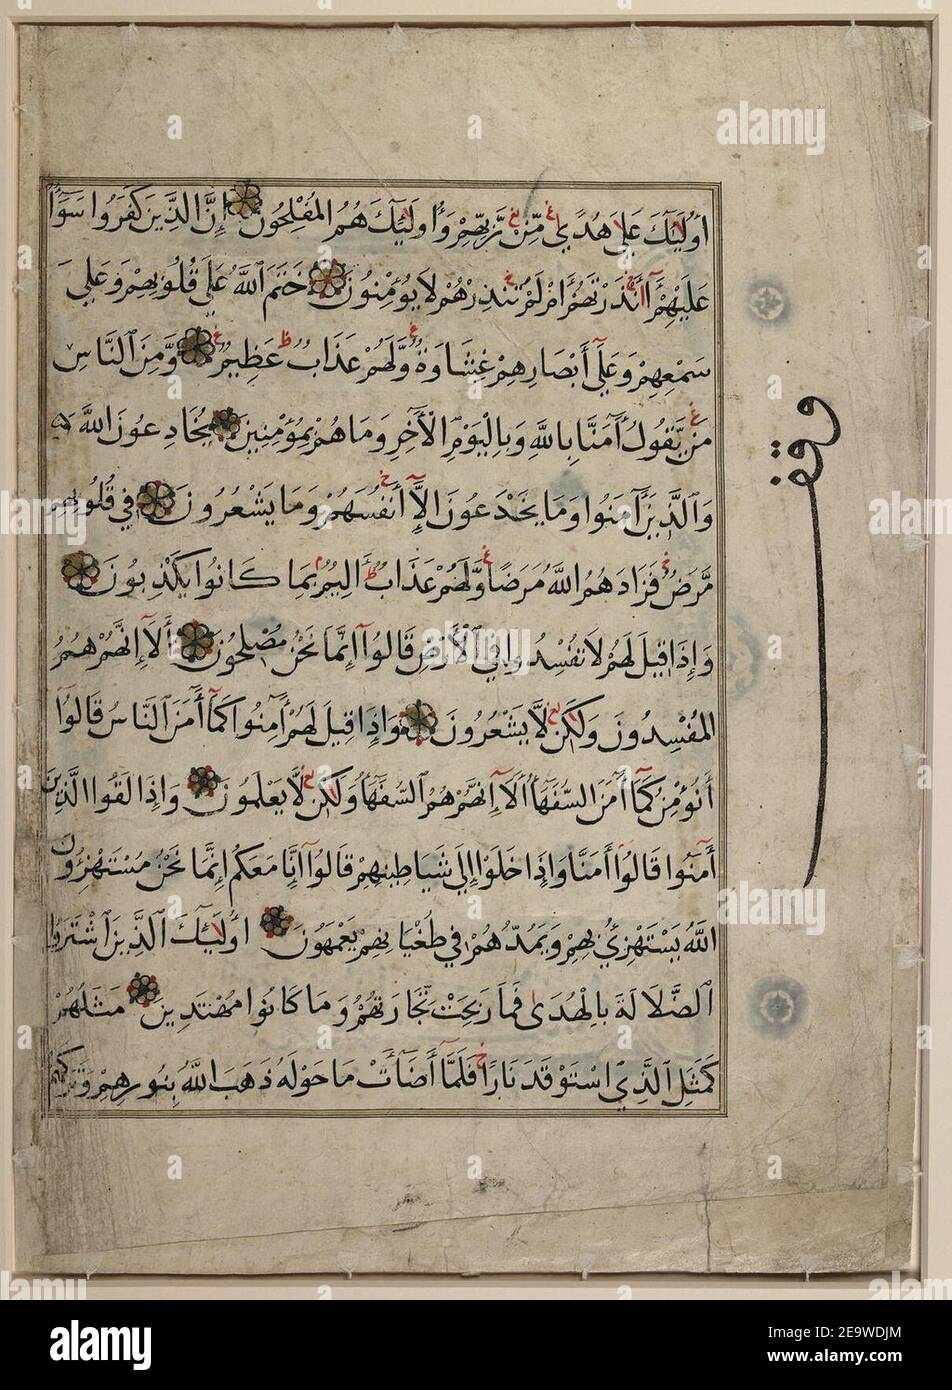 أُولَٰئِكَ عَلَىٰ هُدًى مِّن رَّبِّهِمْ وَأُولَٰئِكَ هُمُ الْمُفْلِحُونَ إِنَّ الَّذِينَ كَفَرُوا سَوَآءٌ
عَلَيْهِمْ أَأَنذَرْتَهُمْ أَمْ لَمْ تُنذِرْهُمْ لَا يُؤْمِنُونَ خَتَمَ اللَّهُ عَلَىٰ قُلُوبِهِمْ وَعَلَىٰ
سَمْعِهِمْ وَعَلَىٰ أَبْصَارِهِمْ غِشَاوَةٌ وَلَهُمْ عَذَابٌ عَظِيمٌ وَمِنَ النَّاسِ
مَن يَقُولُ آمَنَّا بِاللَّهِ وَبِالْيَوْمِ الْآخِرِ وَمَا هُمْ بِمُؤْمِنِينَ يُخَادِعُونَ اللَّهَ
وَالَّذِينَ آمَنُوا وَمَا يَخْدَعُونَ إِلَّا أَنفُسَهُمْ وَمَا يَشْعُرُونَ فِي قُلُوبِهِمْ
مَّرَضٌ فَزَادَهُمُ اللَّهُ مَرَضًا وَلَهُمْ عَذَابٌ أَلِيمٌ بِمَا كَانُوا يَكْذِبُونَ
وَإِذَا قِيلَ لَهُمْ لَا تُفْسِدُوا فِي الْأَرْضِ قَالُوا إِنَّمَا نَحْنُ مُصْلِحُونَ أَلَا إِنَّهُمْ هُمُ
الْمُفْسِدُونَ وَلَٰكِن لَّا يَشْعُرُونَ وَإِذَا قِيلَ لَهُمْ آمِنُوا كَمَا آمَنَ النَّاسُ قَالُوا
أَنُؤْمِنُ كَمَا آمَنَ السُّفَهَاءُ أَلَا إِنَّهُمْ هُمُ السُّفَهَاءُ وَلَٰكِن لَّا يَعْلَمُونَ وَإِذَا لَقُوا الَّذِينَ
آمَنُوا قَالُوا آمَنَّا وَإِذَا خَلَوْا إِلَىٰ شَيَاطِينِهِمْ قَالُوا إِنَّا مَعَكُمْ إِنَّمَا نَحْنُ مُسْتَهْزِئُونَ
اللَّهُ يَسْتَهْزِئُ بِهِمْ وَيَمُدُّهُمْ فِي طُغْيَانِهِمْ يَعْمَهُونَ أُولَٰئِكَ الَّذِينَ اشْتَرَوُا
الضَّلَالَةَ بِالْهُدَىٰ فَمَا رَبِحَتْ تِجَارَتُهُمْ وَمَا كَانُوا مُهْتَدِينَ مَثَلُهُمْ
كَمَثَلِ الَّذِي اسْتَوْقَدَ نَارًا فَلَمَّا أَضَاءَتْ مَا حَوْلَهُ ذَهَبَ اللَّهُ بِنُورِهِمْ وَتَرَكَهُمْ
وقف
alamy
alamy
Image ID: 2E9WDJM
www.alamy.com